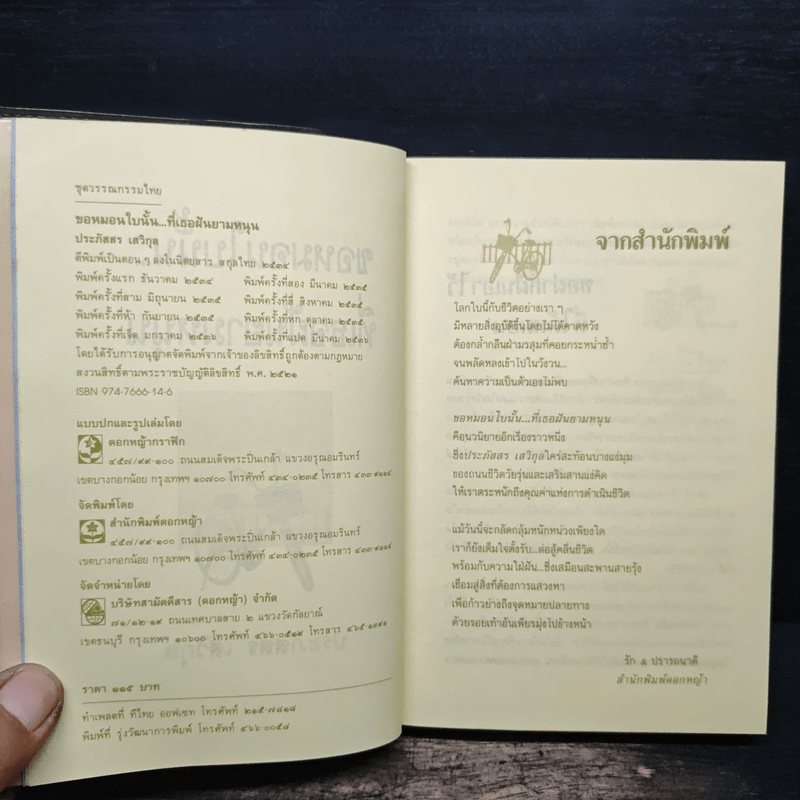 ชุดวรรณกรรมไทย
ขอหมอนใบนั้น...ที่เธอฝันยามหนุน
ประภัสสร เสวิกุล
ตีพิมพ์เป็นตอน ๆ ลงในนิตยสาร สกุลไทย ๒๕๓๔
พิมพ์ครั้งแรก ธันวาคม ๒๕๓๔ พิมพ์ครั้งที่สอง มีนาคม ๒๕๓๕
พิมพ์ครั้งที่สาม มิถุนายน ๒๕๓๕ พิมพ์ครั้งที่สี่ สิงหาคม ๒๕๓๕
พิมพ์ครั้งที่ห้า กันยายน ๒๕๓๕ พิมพ์ครั้งที่หก ตุลาคม ๒๕๓๕
พิมพ์ครั้งที่เจ็ด มกราคม ๒๕๓๖ พิมพ์ครั้งที่แปด มีนาคม ๒๕๓๖
โดยได้รับการอนุญาตจัดพิมพ์จากเจ้าของลิขสิทธิ์ถูกต้องตามกฎหมาย
สงวนสิทธิ์ตามพระราชบัญญัติลิขสิทธิ์ พ.ศ. ๒๕๒๑
ISBN 974-7666-14-6
แบบปกและรูปเล่มโดย
ดอกหญ้ากราฟิก
๔๕๗/๙๙-๑๐๐ ถนนสมเด็จพระปิ่นเกล้า แขวงอรุณอมรินทร์
เขตบางกอกน้อย กรุงเทพฯ ๑๐๗๐๐ โทรศัพท์ ๔๓๔-๐๒๓๕ โทรสาร ๔๓๓-๙๑๑๔
จัดพิมพ์โดย
สำนักพิมพ์ดอกหญ้า
๔๕๗/๙๙-๑๐๐ ถนนสมเด็จพระปิ่นเกล้า แขวงอรุณอมรินทร์
เขตบางกอกน้อย กรุงเทพฯ ๑๐๗๐๐ โทรศัพท์ ๔๓๔-๐๒๓๕ โทรสาร ๔๓๓-๙๑๑๔
จัดจำหน่ายโดย
บริษัทสามัคคีสาร (ดอกหญ้า) จำกัด
๗๑/๑๒-๑๙ ถนนเทศบาลสาย ๒ แขวงวัดกัลยาณ์
เขตธนบุรี กรุงเทพฯ ๑๐๖๐๐ โทรศัพท์ ๔๖๖-๐๕๑๙ โทรสาร ๔๖๕-๑๓๙๑
ราคา ๑๑๕ บาท
ทำเพลตที่ ทีไทย ออฟเซท โทรศัพท์ ๒๑๕-๗๘๑๘
พิมพ์ที่ รุ่งวัฒนาการพิมพ์ โทรศัพท์ ๔๖๖-๐๐๕๘
จากสำนักพิมพ์
โลกใบนี้กับชีวิตอย่างเรา ๆ
มีหลายสิ่งอุบัติขึ้นโดยไม่ได้คาดหวัง
ต้องกล้ำกลืนฝ่ามรสุมที่คอยกระหน่ำซ้ำ
จนพลัดหลงเข้าไปในวังวน...
ค้นหาความเป็นตัวเองไม่พบ
ขอหมอนใบนั้น...ที่เธอฝันยามหนุน
คือนวนิยายอีกเรื่องราวหนึ่ง
ซึ่งประภัสสร เสวิกุลใคร่สะท้อนบางแง่มุม
ของถนนชีวิตวัยรุ่นและเสริมสานแง่คิด
ให้เราตระหนักถึงคุณค่าแห่งการดำเนินชีวิต
แม้วันนี้จะกลัดกลุ้มหนักหน่วงเพียงใด
เราก็ยังเต็มใจตั้งรับ...ต่อสู้คลื่นชีวิต
พร้อมกับความใฝ่ฝัน...ซึ่งเสมือนสะพานสายรุ้ง
เชื่อมสู่สิ่งที่ต้องการแสวงหา
เพื่อก้าวย่างถึงจุดหมายปลายทาง
ด้วยรอยเท้าอันเพียรมุ่งไปข้างหน้า
รัก & ปรารถนาดี
สำนักพิมพ์ดอกหญ้า